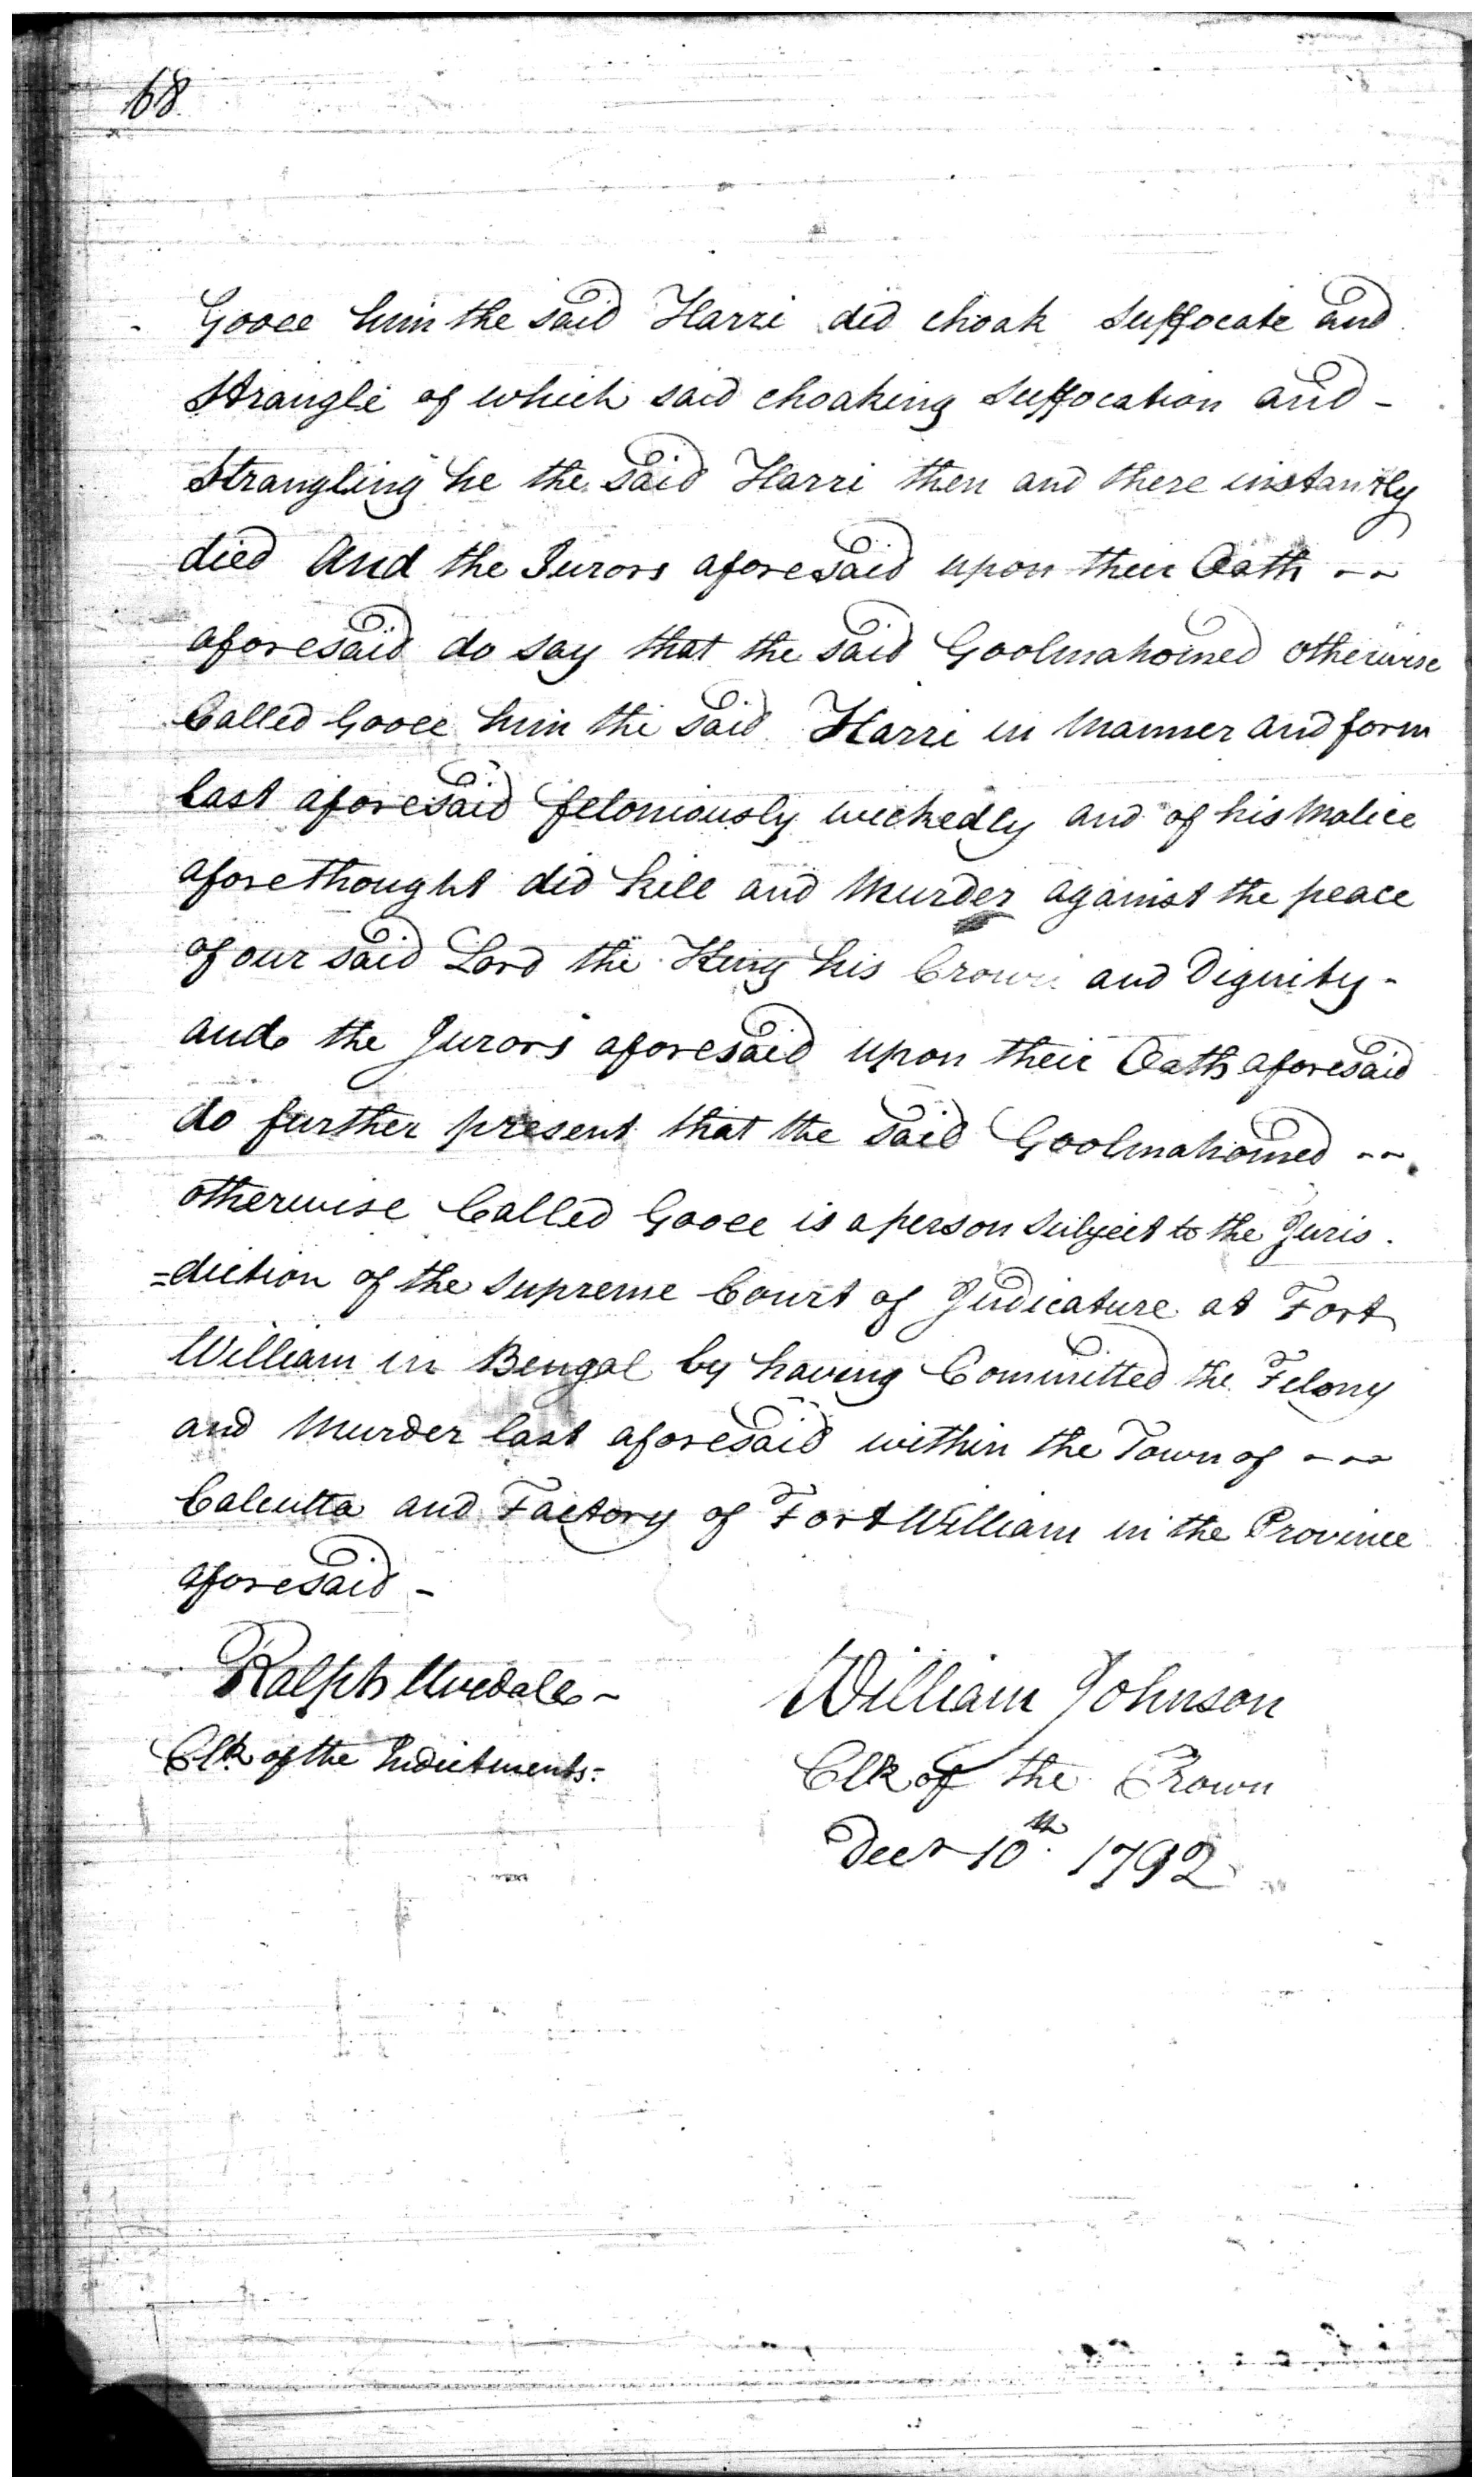 68
Gooll him the said Harri did choak suffocate and
strangle of which said choaking suffocation and -
strangling he the said Harri then and there instantly
died And the Jurors aforesaid upon their Oath --
aforesaid do say that the said Goolmahomed otherwise
Called Gooll him the said Harri in Manner and form
last aforesaid feloniously wickedly and of his Malice
aforethought did kill and Murder against the peace
of our said Lord the King his Crown and Dignity -
and the Jurors aforesaid upon their Oath aforesaid
do further present that the said Goolmahomed --
otherwise Called Gooll is a person subject to the Juris -
=diction of the Supreme Court of Judicature at Fort
William in Bengal by having Committed the Felony
and Murder last aforesaid within the Town of ---
Calcutta and Factory of Fort William in the Province
aforesaid -
Ralph Uvedale -
Clk of the Indictments:
William Johnson
Clk of the Crown
Decr 10th. 1792